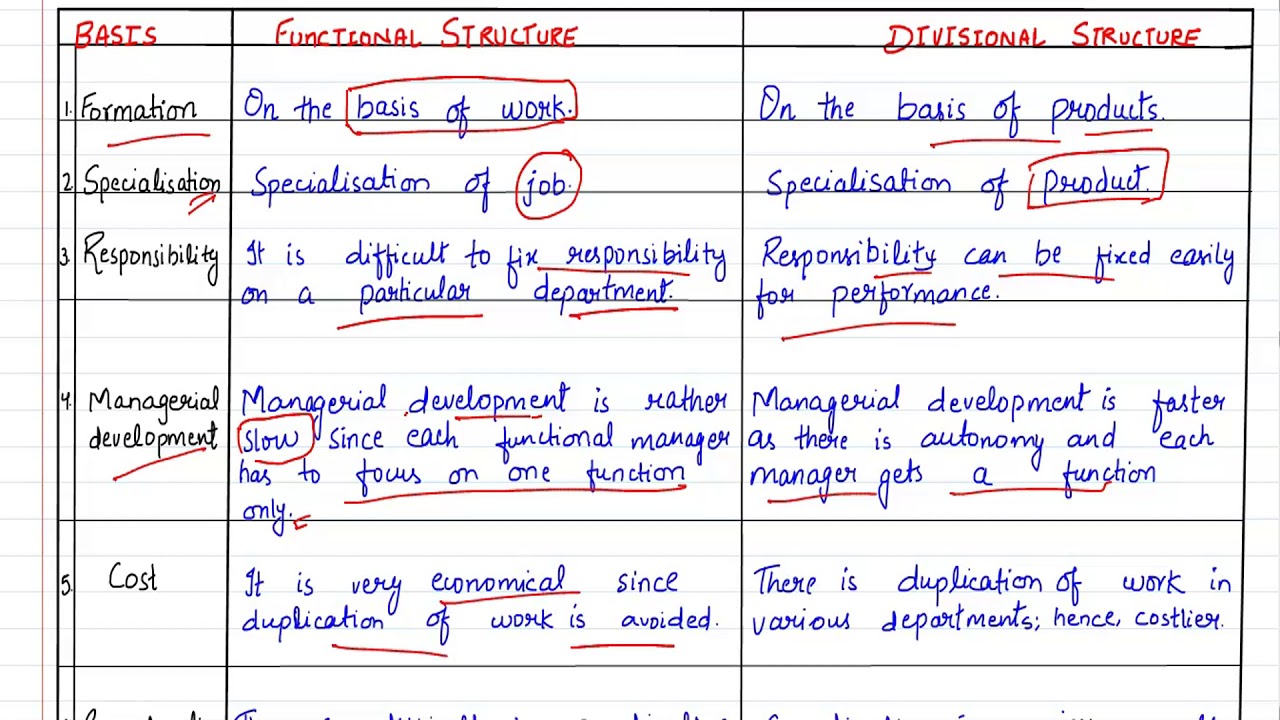 BASIS FUNCTIONAL STRUCTURE DIVISIONAL STRUCTURE
1. Formation On the basis of work. On the basis of products.
2. Specialisation Specialisation of job. Specialisation of product.
3. Responsibility It is difficult to fix responsibility Responsibility can be fixed easily
on a particular department. for performance.
4. Managerial Managerial development is rather Managerial development is faster
development slow since each functional manager as there is autonomy and each
has to focus on one function manager gets a function
only.
5. Cost It is very economical since There is duplication of work in
duplication of work is avoided. various departments; hence, costlier.